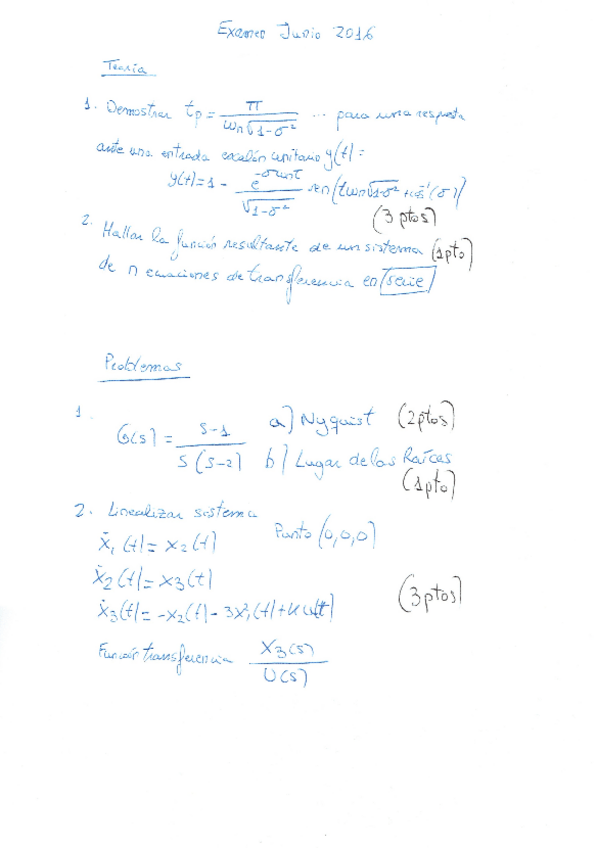 Examen Junio 2016
Teoría
1. Demostrar tp = π / (ωn√(1-σ²)) ... para una respuesta
ante una entrada escalón unitario y(t):
y(t) = 1 - e^(-σωnt) / √(1-σ²) sen(tωn√(1-σ²) + cos⁻¹(σ))
(3 ptos)
2. Hallar la función resultante de un sistema (1pto)
de n ecuaciones de transferencia en serie
Problemas
1. G(s) = (s-1) / (s(s-2)) a) Nyquist (2ptos)
b) Lugar de las Raíces
(1pto)
2. Linealizar sistema Punto (0,0,0)
ẋ₁(t) = x₂(t)
ẋ₂(t) = x₃(t)
ẋ₃(t) = -x₂(t) - 3x²₁(t) + K u(t) (3ptos)
Función transferencia X₃(s) / U(s)